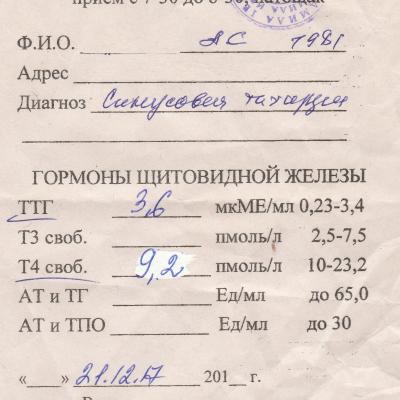 прием с 7-30 до 8-30, натощак
Ф.И.О. АС 1981
Адрес
Диагноз Синусовая тахикардия
ГОРМОНЫ ЩИТОВИДНОЙ ЖЕЛЕЗЫ
ТТГ 3,6 мкМЕ/мл 0,23-3,4
Т3 своб. пмоль/л 2,5-7,5
Т4 своб. 9,2 пмоль/л 10-23,2
АТ и ТГ Ед/мл до 65,0
АТ и ТПО Ед/мл до 30
«__» 21.12.17 201__ г.